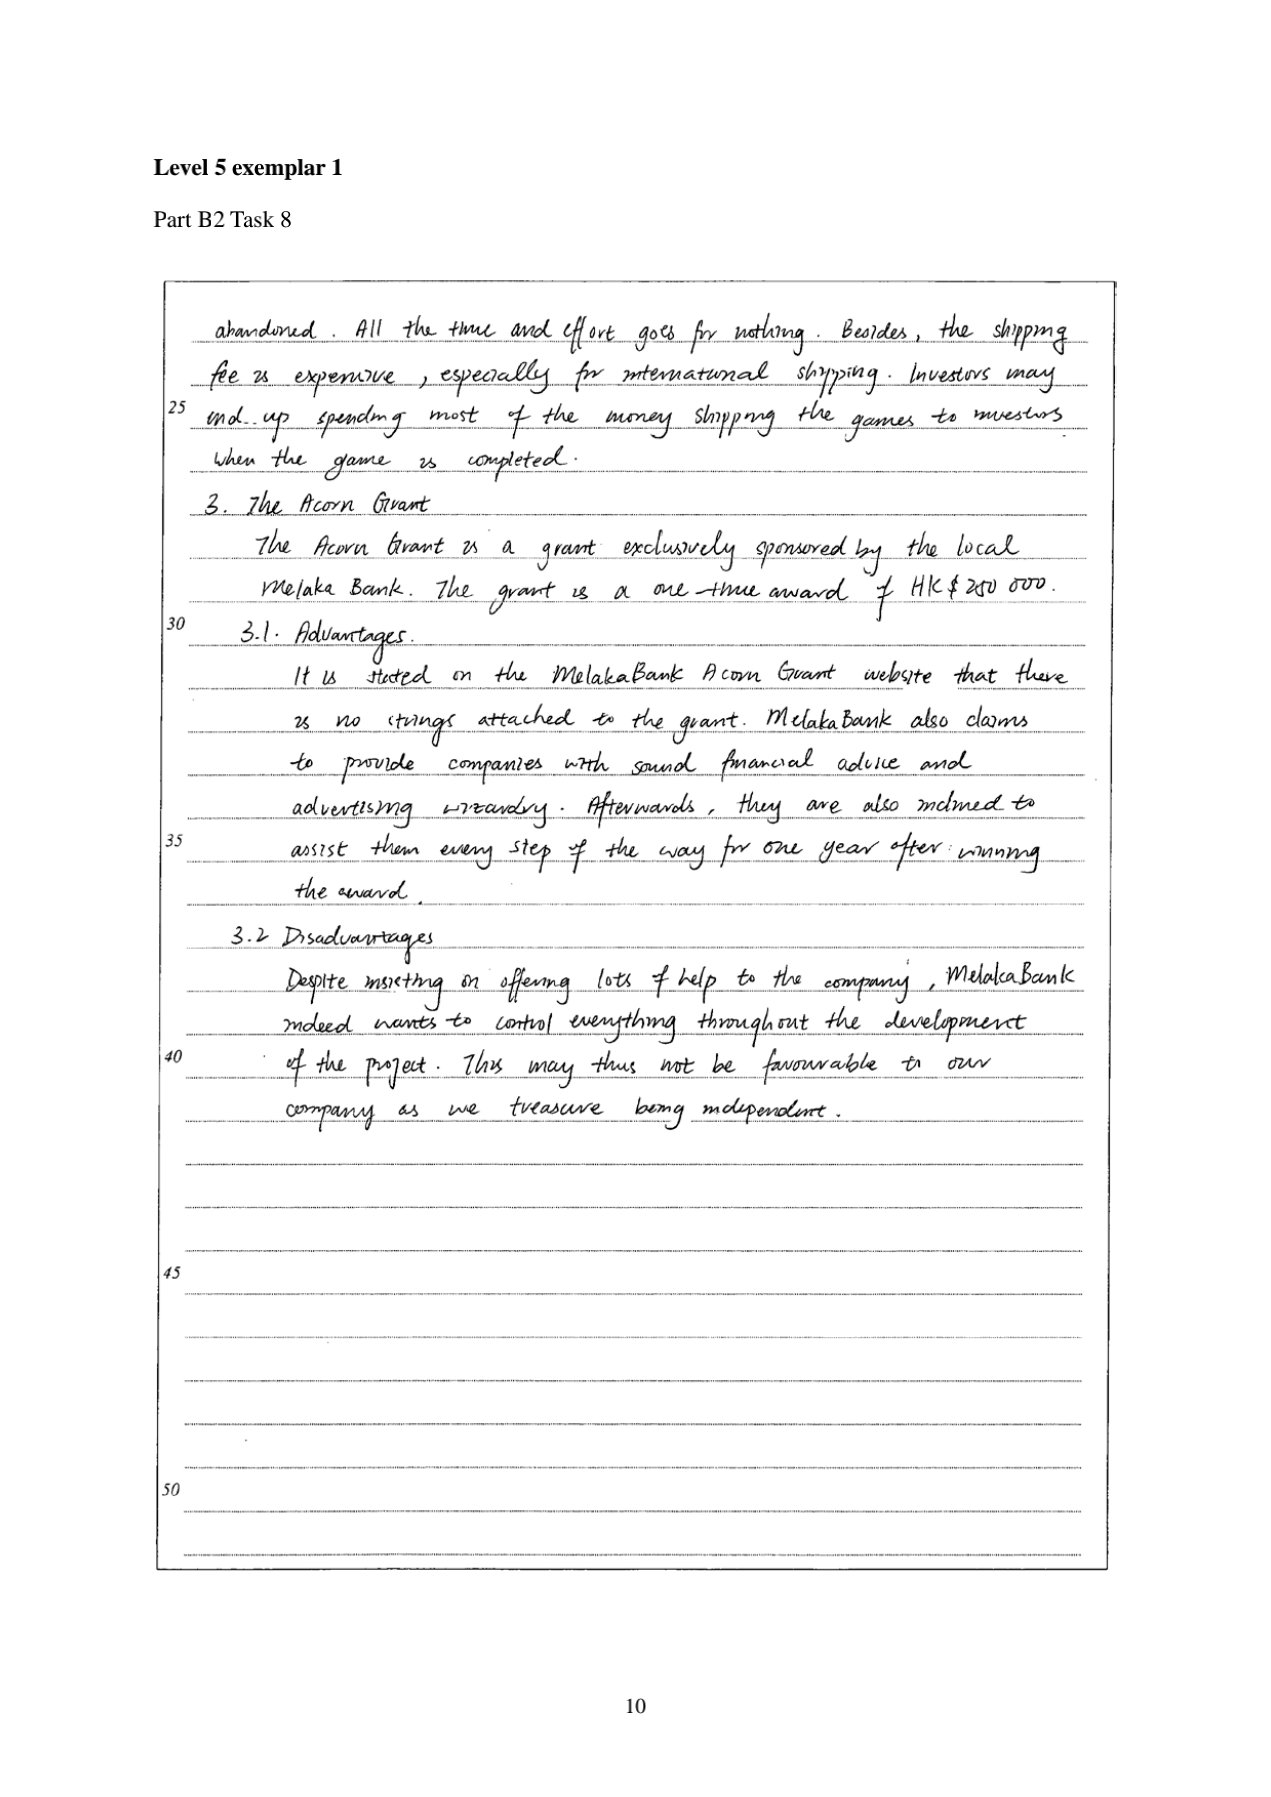 Level 5 exemplar 1
Part B2 Task 8
abandoned. All the time and effort goes for nothing. Besides, the shipping
fee is expensive, especially for international shipping. Investors may
25 end up spending most of the money shipping the games to investors
when the game is completed.
3. The Acorn Grant
The Acorn Grant is a grant exclusively sponsored by the local
Melaka Bank. The grant is a one-time award of HK$250 000.
30 3.1. Advantages.
It is stated on the MelakaBank Acorn Grant website that there
is no strings attached to the grant. MelakaBank also claims
to provide companies with sound financial advice and
advertising wizardry. Afterwards, they are also inclined to
35 assist them every step of the way for one year after winning
the award.
3.2 Disadvantages
Despite insisting on offering lots of help to the company, MelakaBank
indeed wants to control everything throughout the development
40 of the project. This may thus not be favourable to our
company as we treasure being independent.
45
50
10